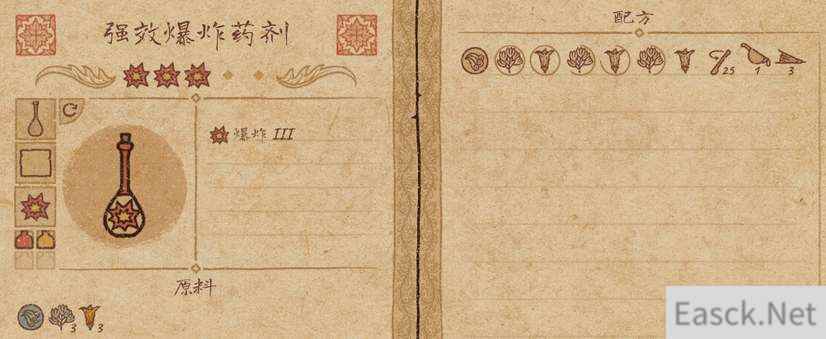 强效爆炸药剂
爆炸 III
原料
3 3
配方
25 1 3
Easck.Net